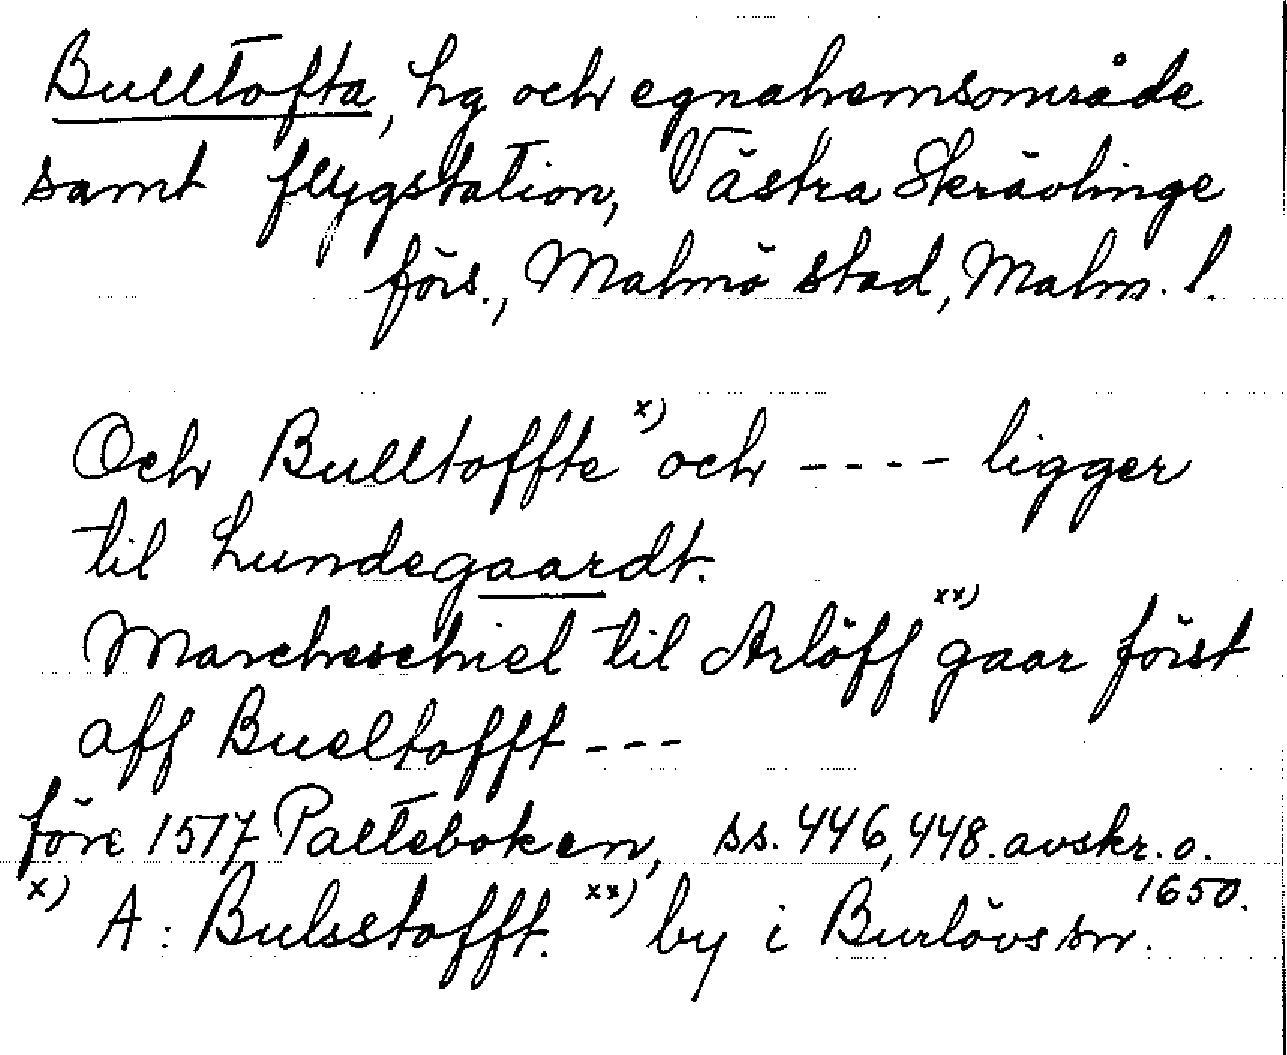 Bulltofta, hg och egnahemsområde
samt flygstation, Västra Skrävlinge
förs., Malmö stad, Malm. l.
Och Bulltoffte x) och ---- ligger
til Lundegaardt.
Marcheschiel til Arlöff xx) gaar först
aff Bueltofft ---
före 1517 Palteboken, ss. 446, 448. avskr. o.
1650.
x) A: Bulsstofft. xx) by i Burlövs sn.